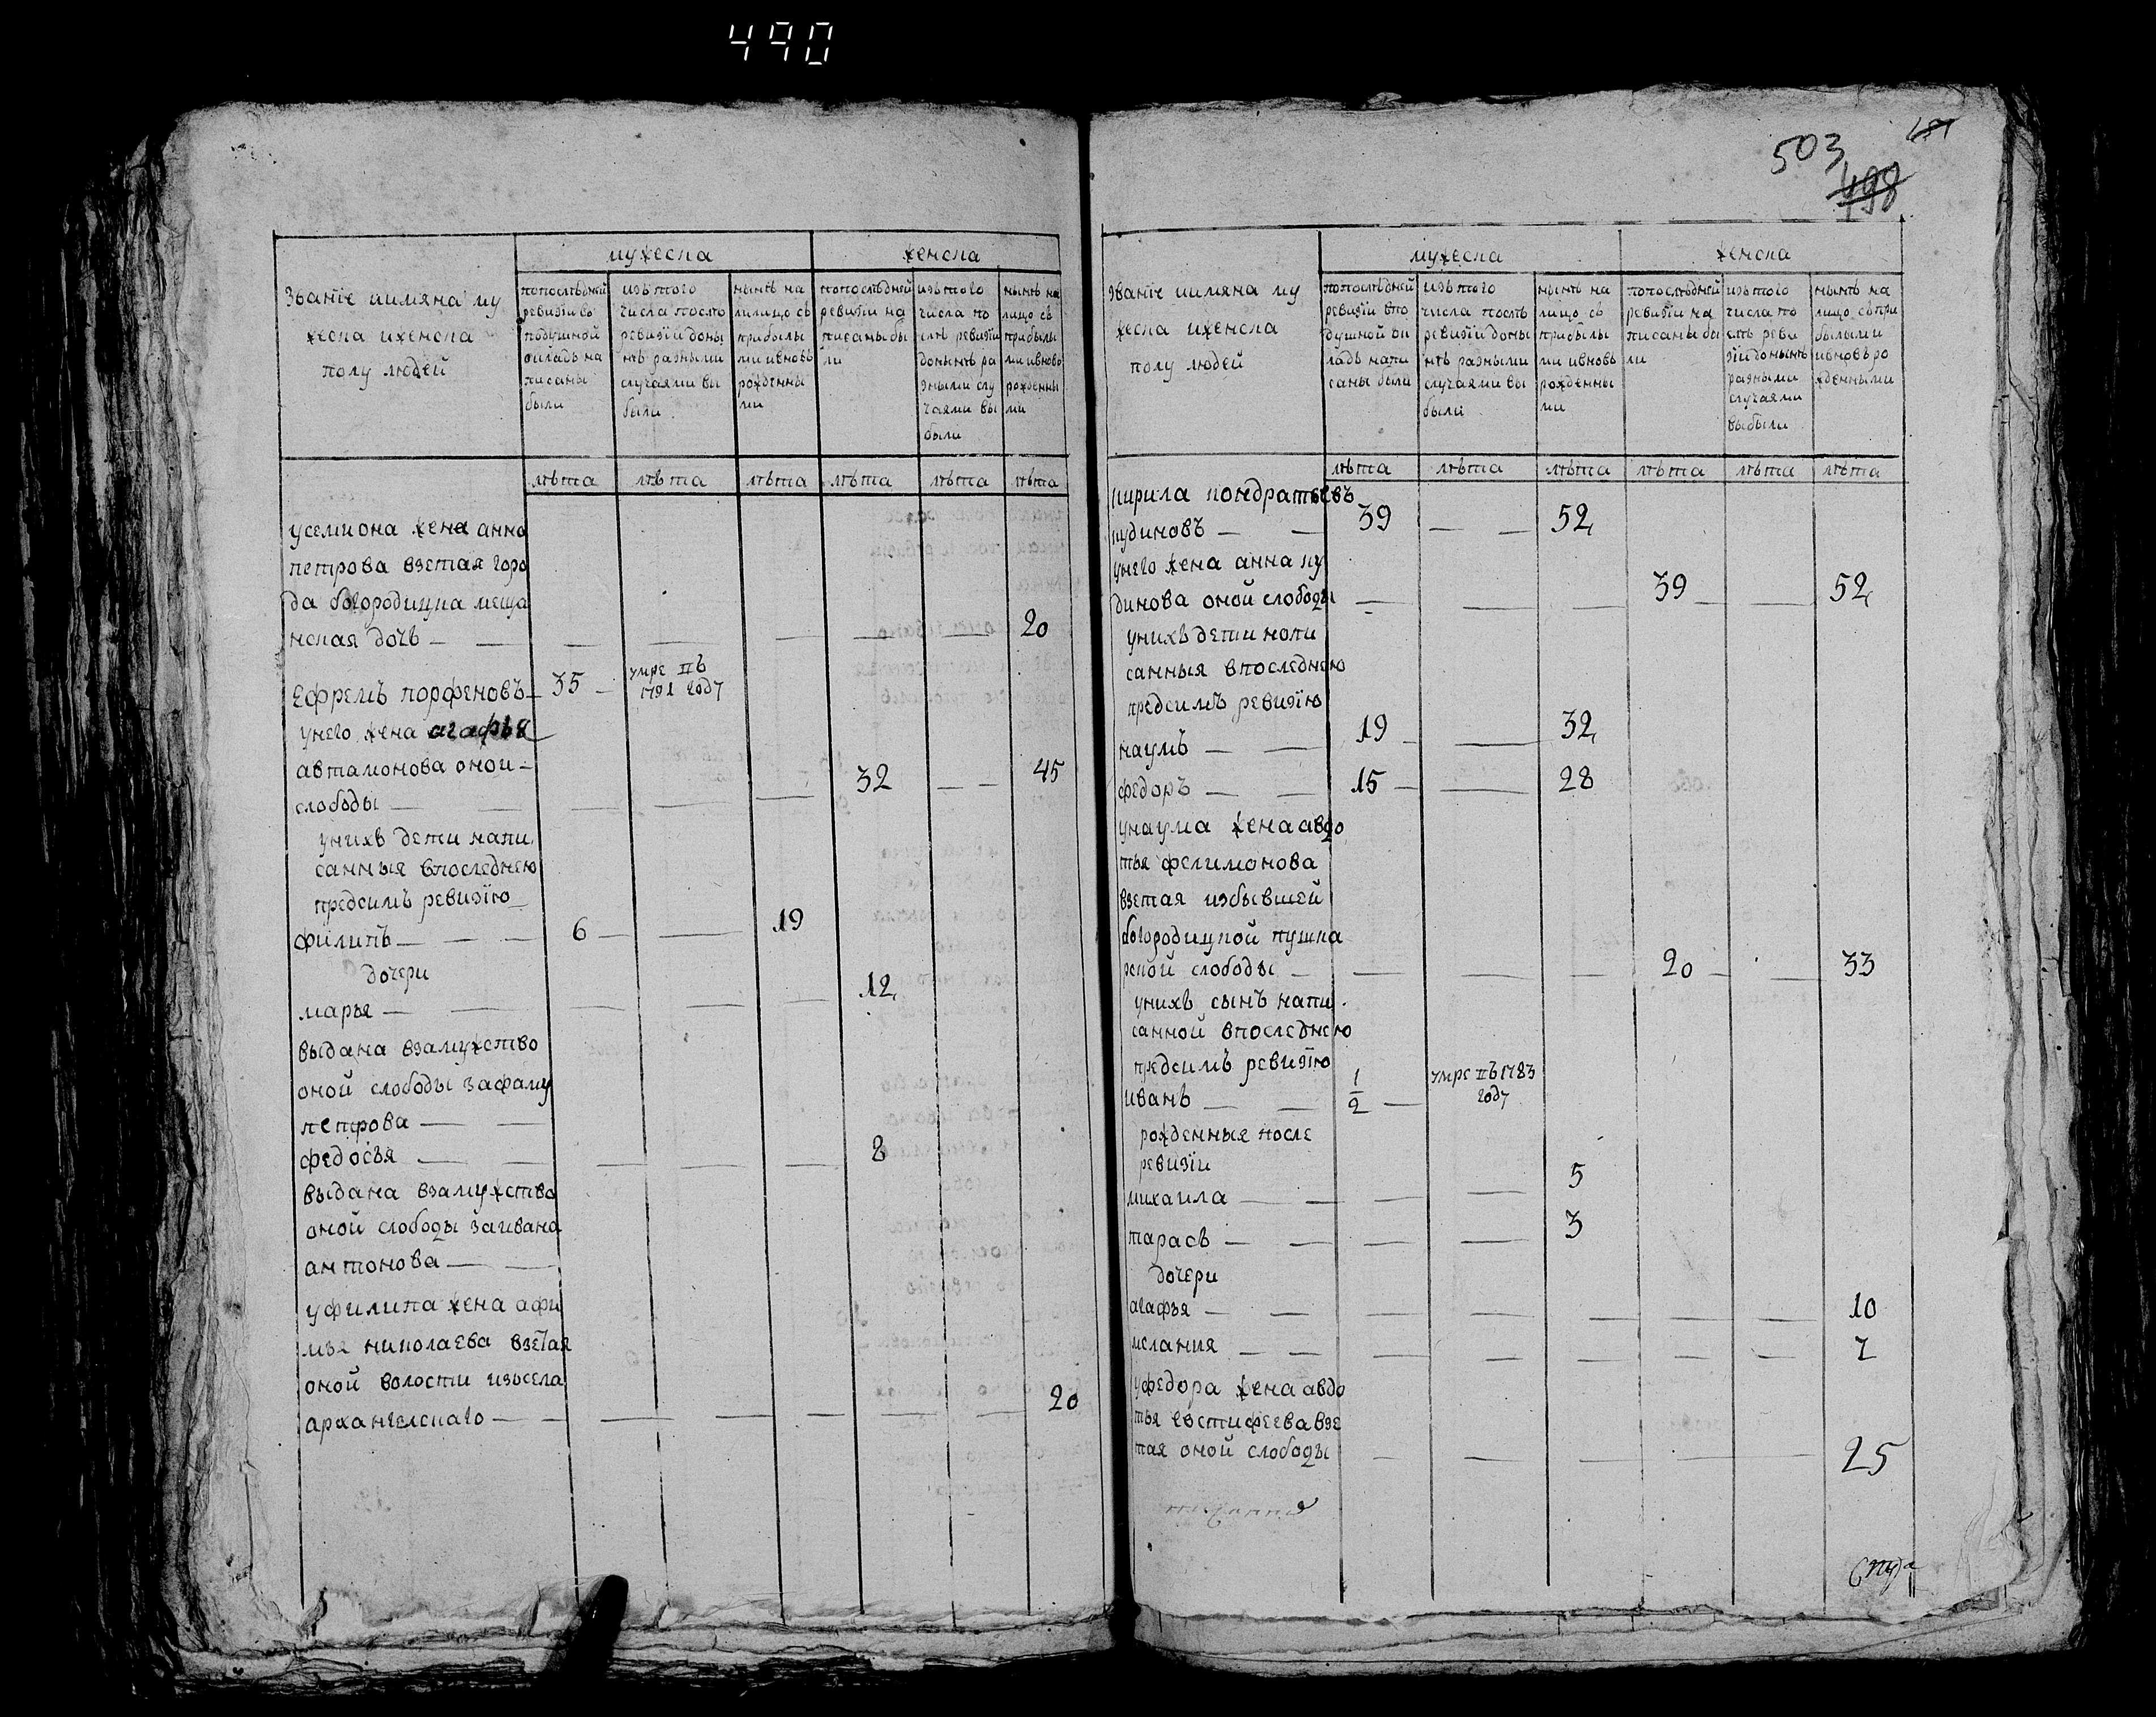 490
503
498
мужеска
женска
Званїе иимяна му
жеска иженска
полу людей
попоследней
ревизїи въ
подушной
окладъ на
писаны
были
изътого
числа послѣ
ревизїи доны
нѣ разными
случаями вы
были
нынѣ на
лицо съ
прибылы
ми ивновь
рожденны
ми
попоследней
ревизїи на
писаны бы
ли
изътого
числа по
слѣ ревизїи
донынѣ ра
зными слу
чаями вы
были
нынѣ на
лицо съ
прибылы
ми ивново
рожденны
ми
лѣта лѣта лѣта лѣта лѣта лѣта
усемиона жена анна
петрова взетая горо
да богородицка меща
нская дочь — — — — — — — 20
Ефремъ парфеновъ — 35 — умре въ
1791 году
унего жена агафья
автамонова оной —
слободы — — — — — 32 — — 45
унихъ дети напи
санныя впоследнею
предсимъ ревизїю
филипъ — — — 6 — — 19
дочери
марья — — — — — 12
выдана взамужство
оной слободы зафаму
петрова — —
федосья — — — — — 8
выдана взамужство
оной слободы заивана
антонова — —
уфилипа жена афи
мья николаева взетая
оной волости изьсела
архангелскаго — — — — — — — 20
мужеска
женска
Званїе иимяна му
жеска иженска
полу людей
попоследней
ревизїи впо
душной ок
ладъ напи
саны были
изътого
числа послѣ
ревизїи доны
нѣ разными
случаями вы
были
нынѣ на
лицо съ
прибылы
ми ивновь
рожденны
ми
попоследней
ревизїи на
писаны бы
ли
изътого
числа по
слѣ реви
зїи донынѣ
разными
случаями
выбыли
нынѣ на
лицо съпри
былыми
ивновь ро
жденными
лѣта лѣта лѣта лѣта лѣта лѣта
кирила кондратьевъ
кудиновъ — — 39 — — 52
унего жена анна ку
динова оной слободы — — — 39 — — 52
унихъ дети напи
санныя впоследнею
предсимъ ревизїю
наумъ — — 19 — — 32
федоръ — — 15 — — 28
унаума жена авдо
тья фелимонова
взетая избывшей
богородицкой пушка
рской слободы — — — — 20 — — 33
унихъ сынъ напи
санной впоследнею
предсимъ ревизїю
иванъ — — 1/2 — умре въ 1783
году
рожденныя после
ревизїи
михаила — — — — 5
тарасъ — — — — 3
дочери
агафья — — — — — — — 10
мелания — — — — — — — 7
уфедора жена авдо
тья евстифеева взе
тая оной слободы — — — — — 25